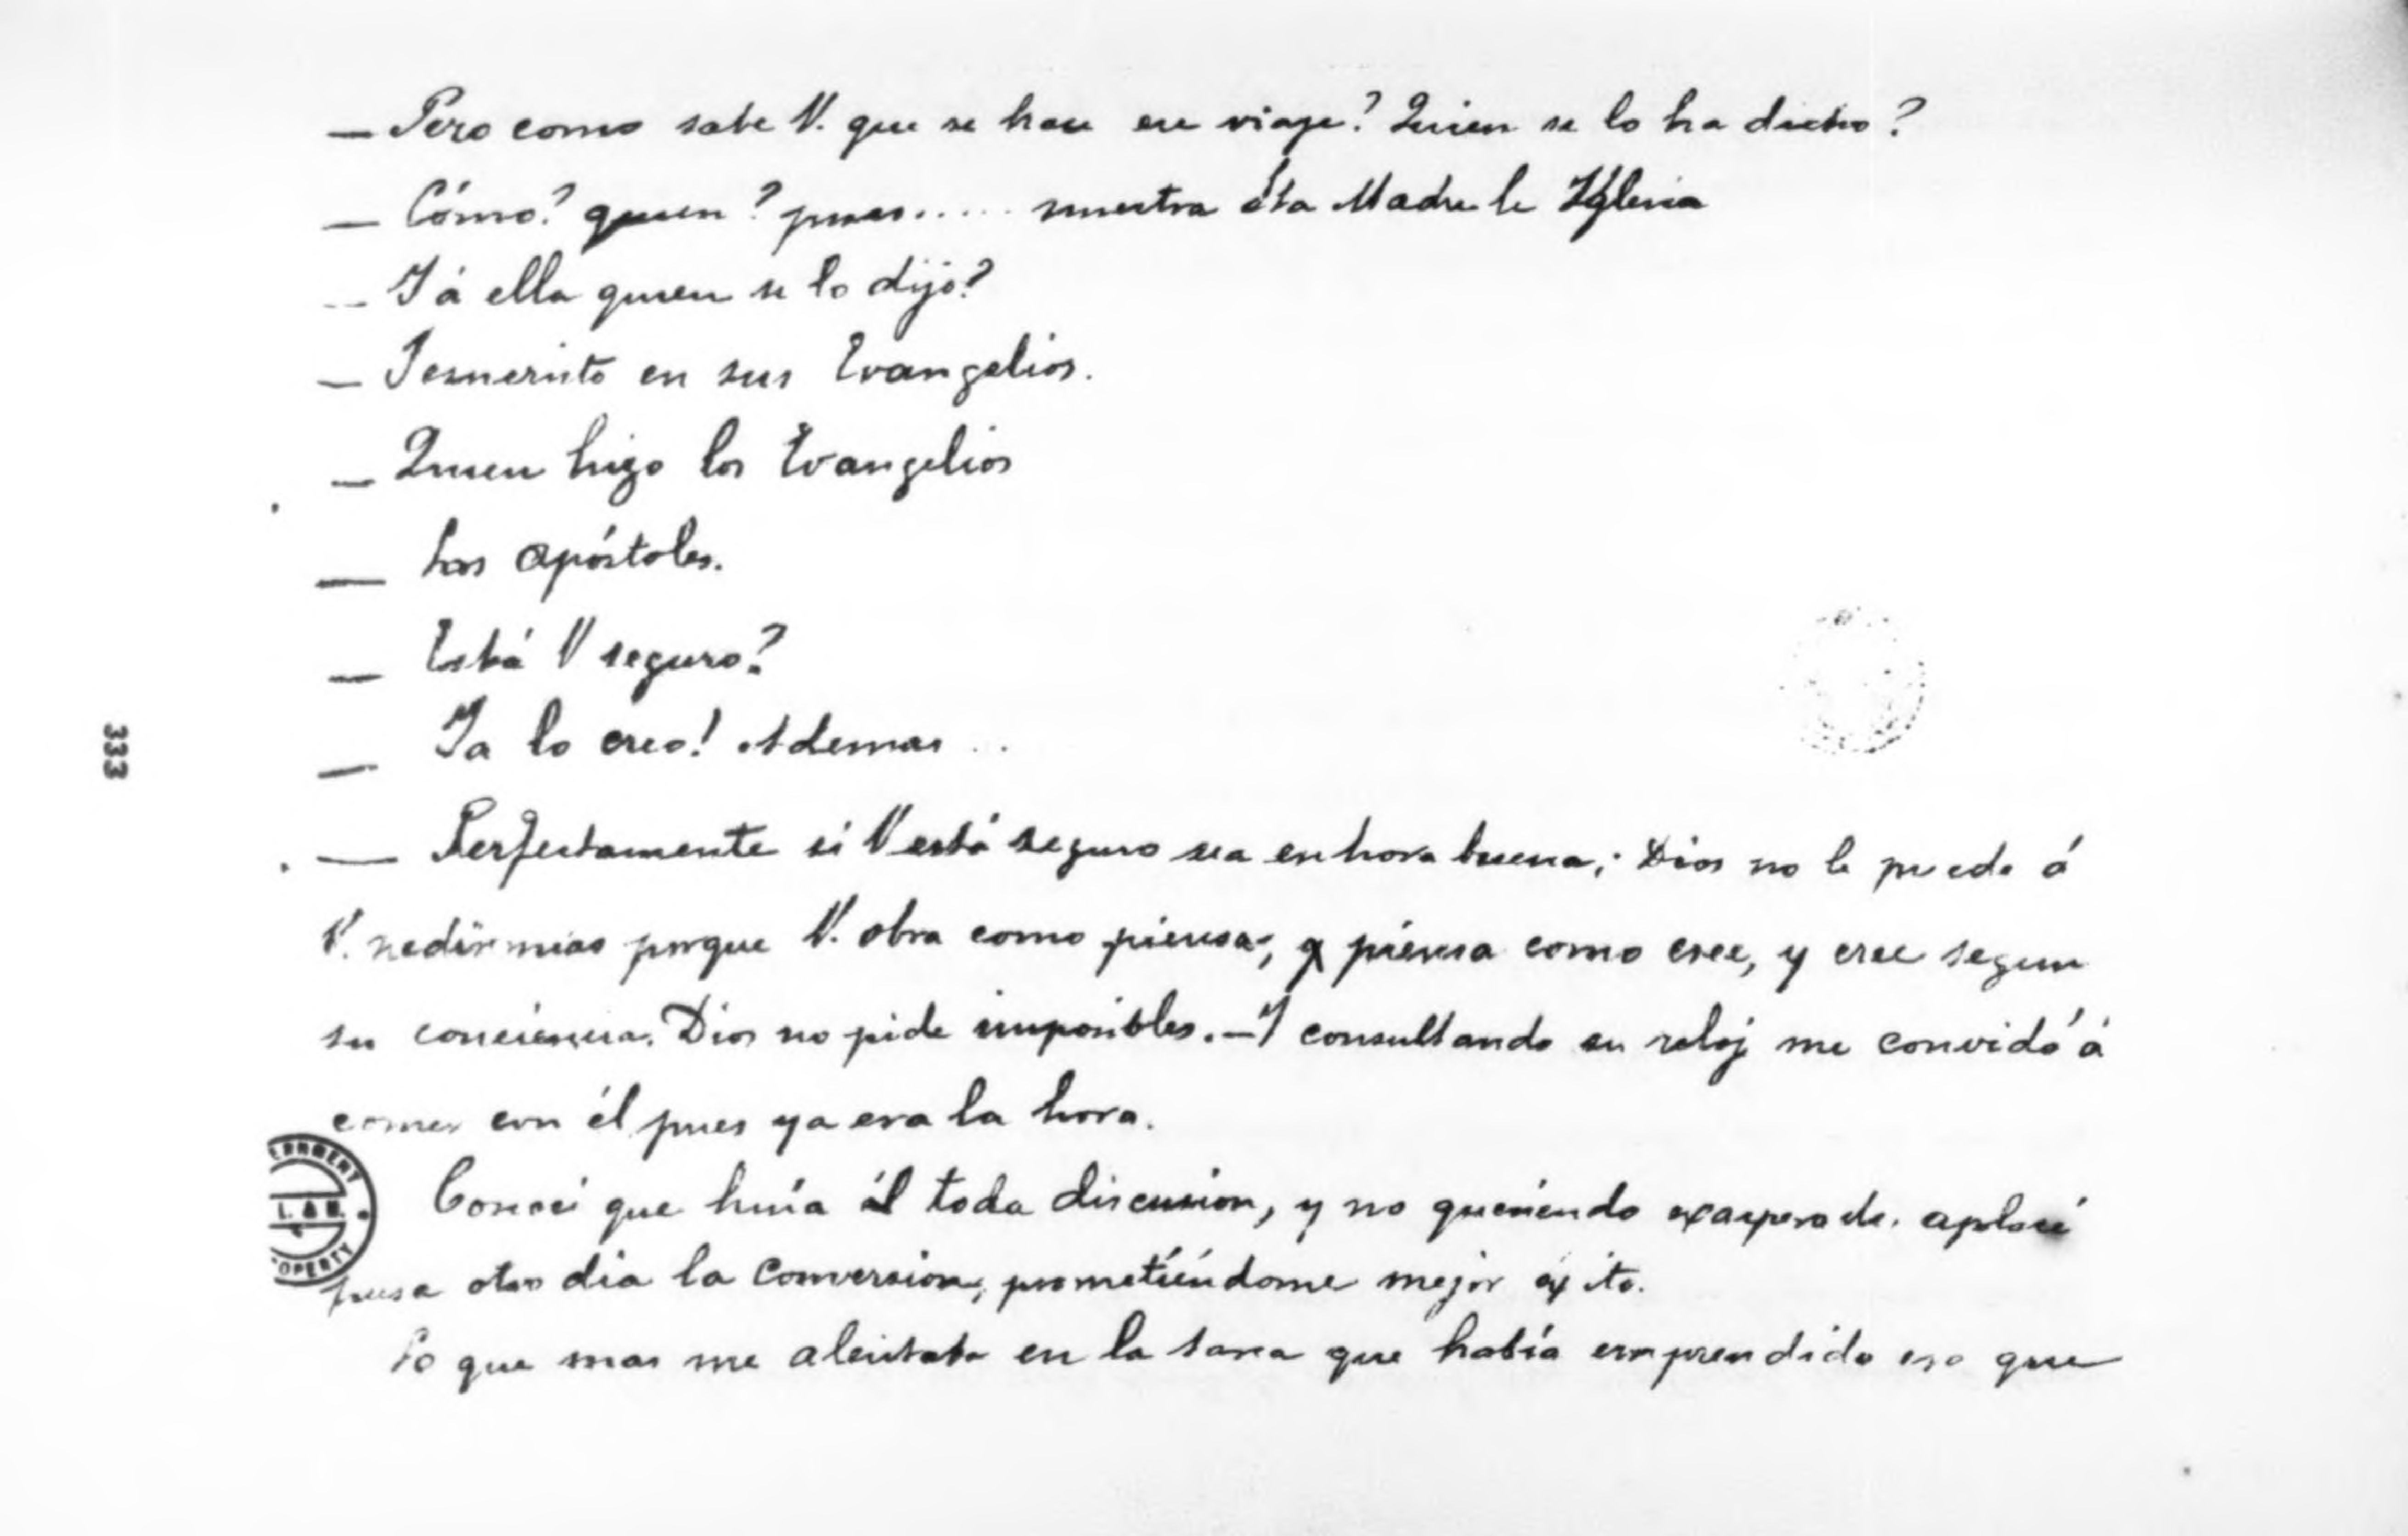 — Pero como sabe V. que se hace ese viaje? Quien se lo ha dicho?
— Cómo? quien? pues..... nuestra Sta Madre la Yglesia
— Y á ella quien se lo dijo?
— Jesucristo en sus Evangelios.
— Quien hizo los Evangelios
— Los apóstoles.
— Está V seguro?
— Ya lo creo! Ademas ...
— Perfectamente si V está seguro sea enhorabuena; Dios no le puede á
V. pedir mas porque V. obra como piensa, y piensa como cree, y cree segun
su conciencia. Dios no pide imposibles. — Y consultando su reloj me convidó á
comer con él pues ya era la hora.
Conocí que huía él toda discusion, y no queriendo exasperarle aplacé
para otro dia la conversion, prometiéndome mejor éxito.
Lo que mas me alentaba en la tarea que había emprendido era que
333